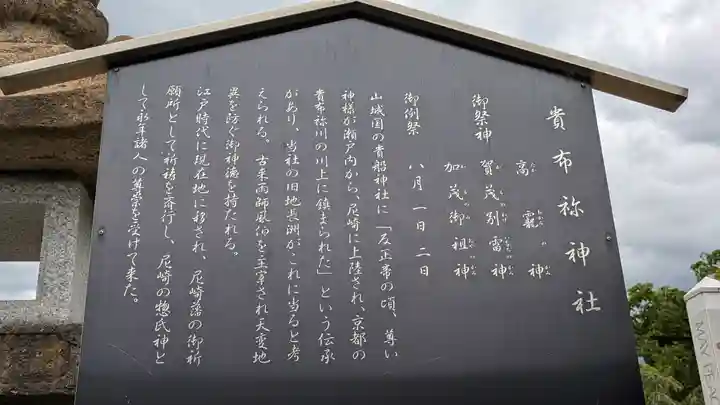 貴布祢神社
御祭神 高龗神
賀茂別雷神
加茂御祖神
御例祭 八月一日二日
山城国の貴船神社に「反正帝の頃、尊い
神様が瀬戸内から、尼崎に上陸され、京都の
貴布祢川の川上に鎮まられた」という伝承
があり、当社の旧地長洲がこれに当ると考
えられる。古来雨師風伯を主宰され天変地
異を防ぐ御神徳を持たれる。
江戸時代に現在地に移され、尼崎藩の御祈
願所として祈祷を斉行し、尼崎の惣氏神と
して永年諸人の尊崇を受けて来た。
MAY PEAC